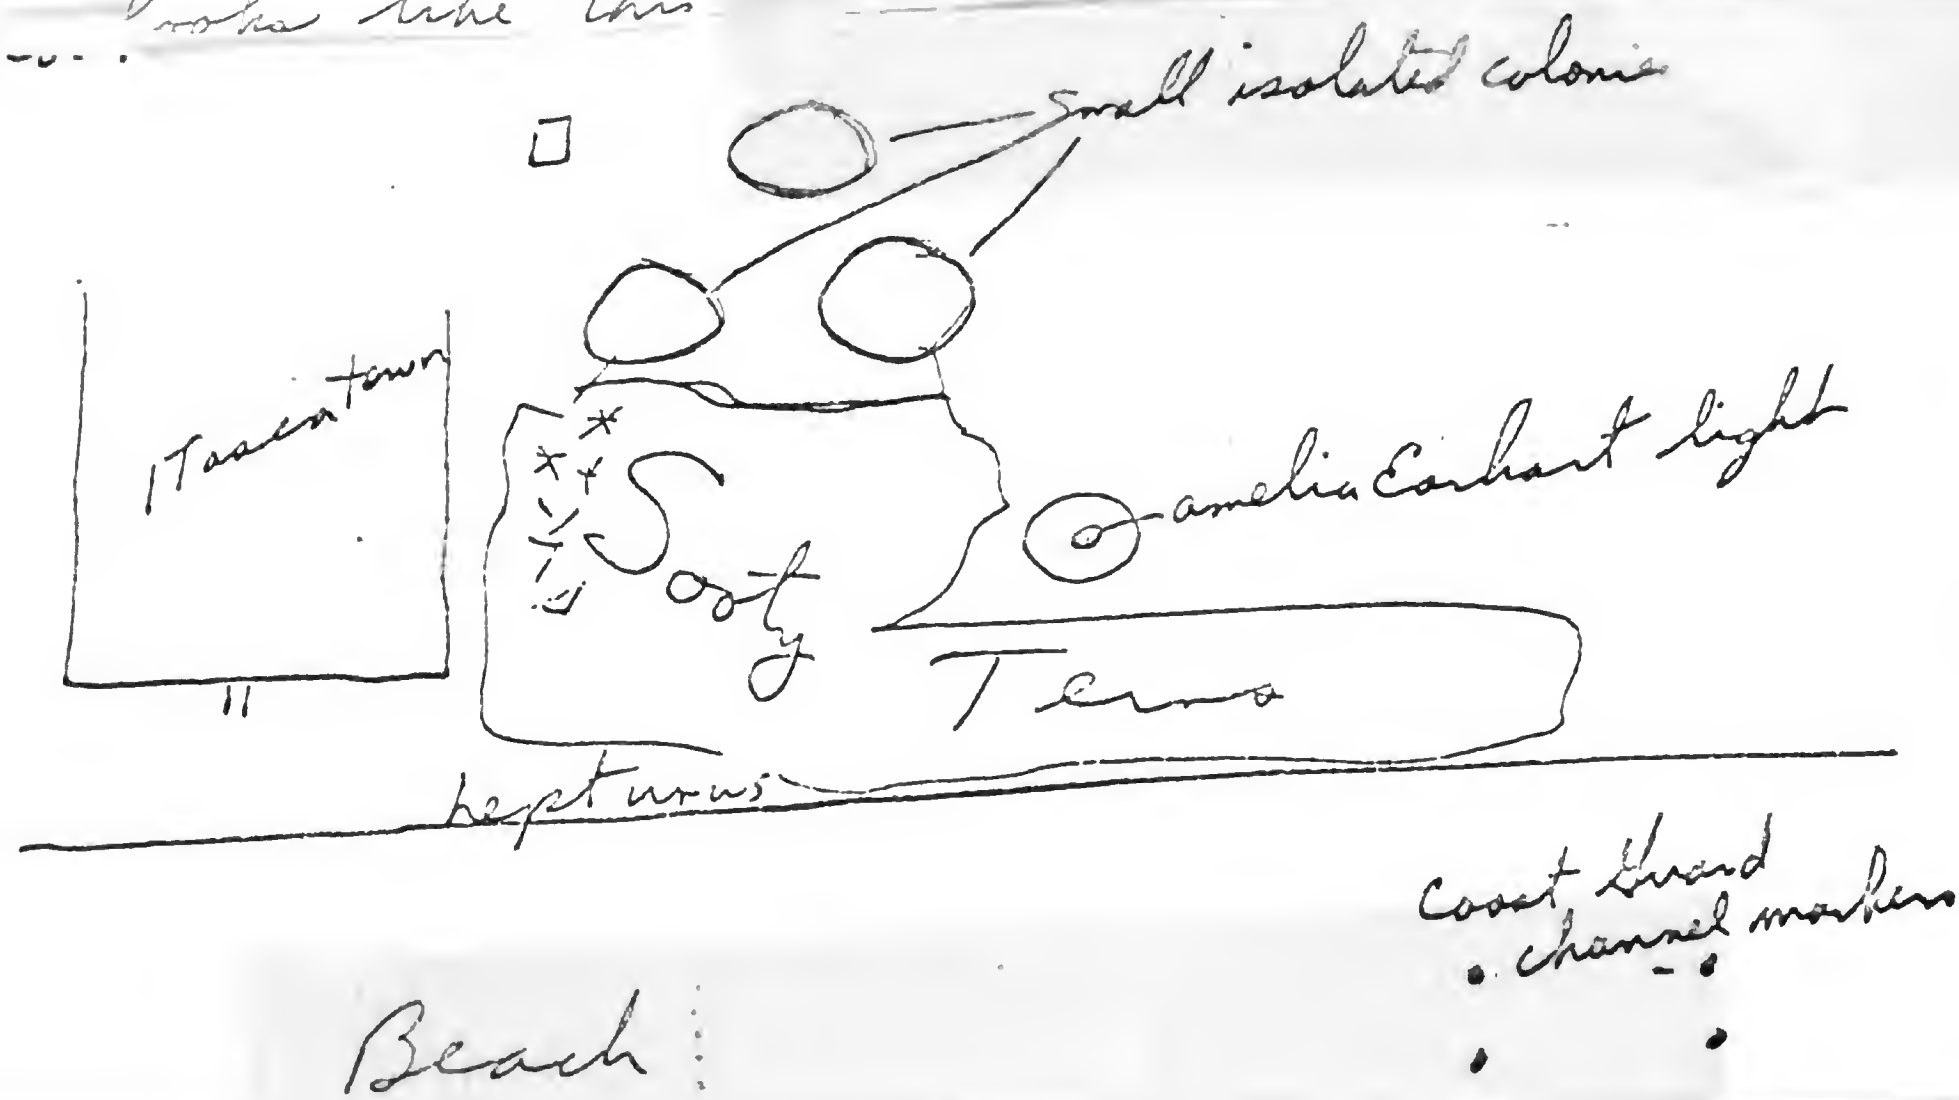 looks like this
Small isolated colonies
Itascatown
amelia Earhart light
Sooty
Terns
Lepturus
Coast Guard
channel markers
Beach